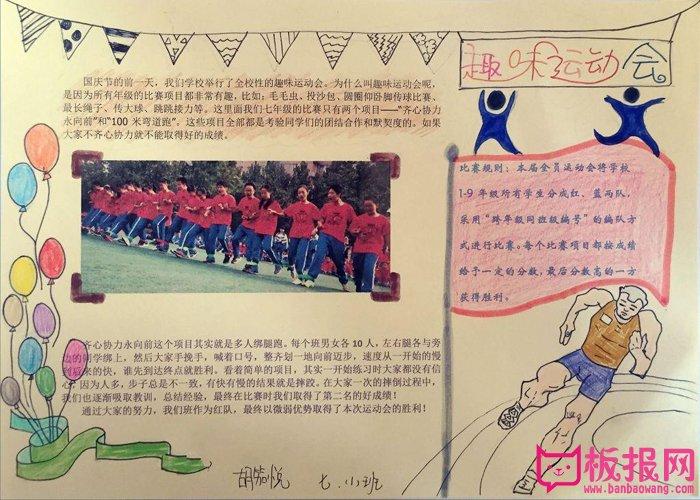 趣味运动会
国庆节的前一天，我们学校举行了全校性的趣味运动会。为什么叫趣味运动会呢，
是因为所有年级的比赛项目都非常有趣，比如：毛毛虫、投沙包、圆圈仰卧脚传球比赛、
最长绳子、传大球、跳跳接力等。这里面我们七年级的比赛只有两个项目——“齐心协力
永向前”和“100 米弯道跑”。这些项目全部都是考验同学们的团结合作和默契度的。如果
大家不齐心协力就不能取得好的成绩。
比赛规则：本届全员运动会将学校
1-9 年级所有学生分成红、蓝两队，
采用“跨年级同班级编号”的编队方
式进行比赛。每个比赛项目都按成绩
给予一定的分数，最后分数高的一方
获得胜利。
齐心协力永向前这个项目其实就是多人绑腿跑。每个班男女各 10 人，左右腿各与旁
边的同学绑上，然后大家手挽手，喊着口号，整齐划一地向前迈步，速度从一开始的慢
到后来的快，谁先到达终点就胜利。看着简单的项目，其实一开始练习时大家都没有信
心，因为人多，步子总是不一致，有快有慢的结果就是摔跤。在大家一次的摔倒过程中，
我们也逐渐吸取教训，总结经验，最终在比赛时我们取得了第二名的好成绩！
通过大家的努力，我们班作为红队，最终以微弱优势取得了本次运动会的胜利！
胡 悦 七.小班
板报网
www.banbaowang.com